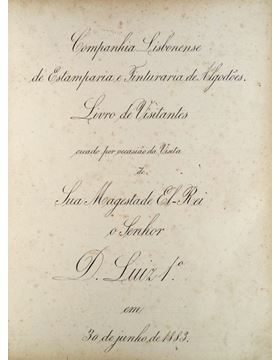 Companhia Lisbonense
de Estamparia e Tinturaria de Algodões.
Livro de Visitantes
creado por occasião da Visita
de
Sua Magestade El-Rei
o Senhor
D. Luiz 1.º
em
30 de junho, de 1883.